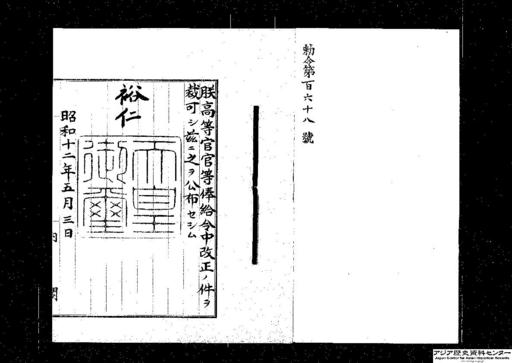 勅令第百六十八號
朕高等官官等俸給令中改正ノ件ヲ
裁可シ茲ニ之ヲ公布セシム
裕仁
天皇
御璽
昭和十二年五月三日
内閣
アジア歴史資料センター
Japan Center for Asian Historical Records